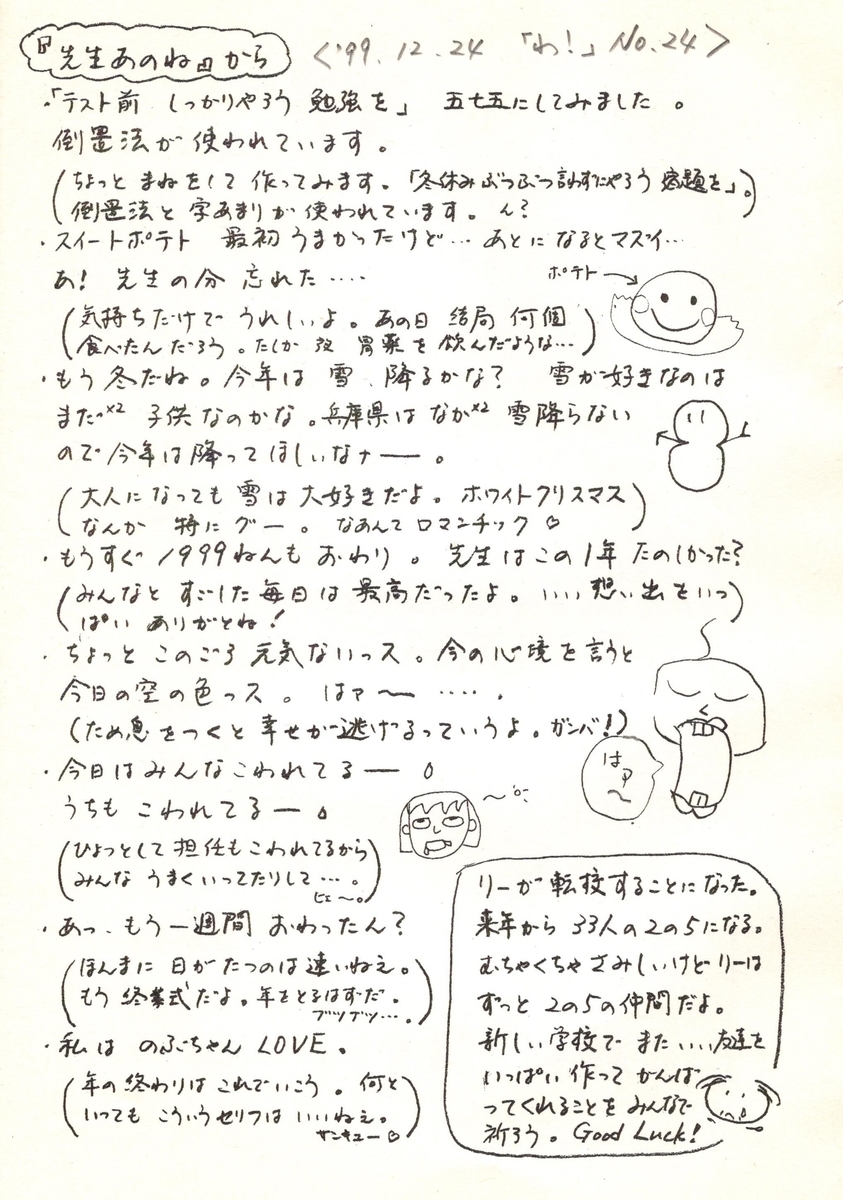 『先生あのね』から
<'99.12.24 「わ!」 No.24>
・「テスト前 しっかりやろう 勉強を」 五七五にしてみました 。
倒置法が 使われています 。
(ちょっと まねをして 作ってみます。「冬休み ぶつぶつ言わずにやろう 宿題を」。
倒置法と 字あまりが 使われています。 ん?)
・スイートポテト 最初 うまかったけど… あとに なると マズイ…
あ! 先生の分 忘れた ‥‥
ポテト→
(気持ちだけで うれしいよ。あの日 結局 何個
食べたんだろう。たしか 夜 胃薬を 飲んだような…)
・もう 冬だね。今年は 雪 、降るかな? 雪が好きなのは
まだ×2 子供 なのかな 。兵庫県は なか×2 雪降らない
ので 今年は 降って ほしいなァー 。
(大人に なっても 雪は 大好きだよ。 ホワイトクリスマス
なんか 特に グー 。 なあんて ロマンチック ♡)
・もうすぐ 1999ねんも おわり 。 先生は この 1年 たのしかった?
(みんなと すごした 毎日は 最高だったよ。 いい 想い出を いっ
ぱい ありがとね!)
・ちょっと このごろ 元気ないっス 。今の 心境を 言うと
今日の 空の 色っス 。 はァ〜 ‥‥ .
(ため息を つくと 幸せが 逃げるって いうよ 。ガンバ!)
はァ〜
・今日は みんな こわれてる ー 。
うちも こわれてる ー 。
(ひょっとして 担任も こわれてるから
みんな うまく いってたりして … 。
ヒェ〜。)
・あっ、もう 一週間 おわったん?
(ほんまに 日が たつのは 速いねえ。
もう 終業式だよ。年をとるはずだ .
ブツブツ… .)
・私は のぶちゃん LOVE 。
(年の 終わりは これで いこう 。 何と
いっても こういう セリフは いいねえ。
サンキュー♡)
リーが 転校することに なった。
来年から 33人の 2の5に なる。
むちゃくちゃ さみしいけど リーは
ずっと 2の5の 仲間だよ。
新しい 学校で また いい 友達を
いっぱい 作って がんば
ってくれることを みんなで
祈ろう 。 Good Luck!